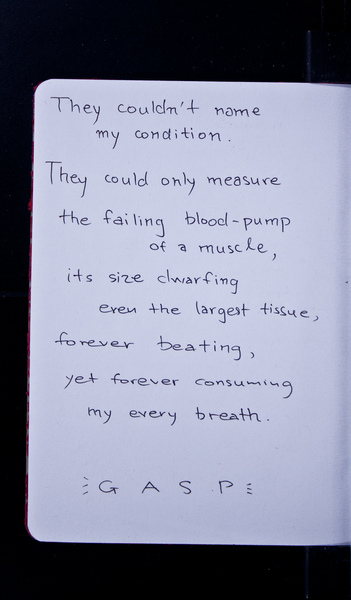 They couldn't name
my condition.
They could only measure
the failing blood-pump
of a muscle,
its size dwarfing
even the largest tissue,
forever beating,
yet forever consuming
my every breath.
G A S P